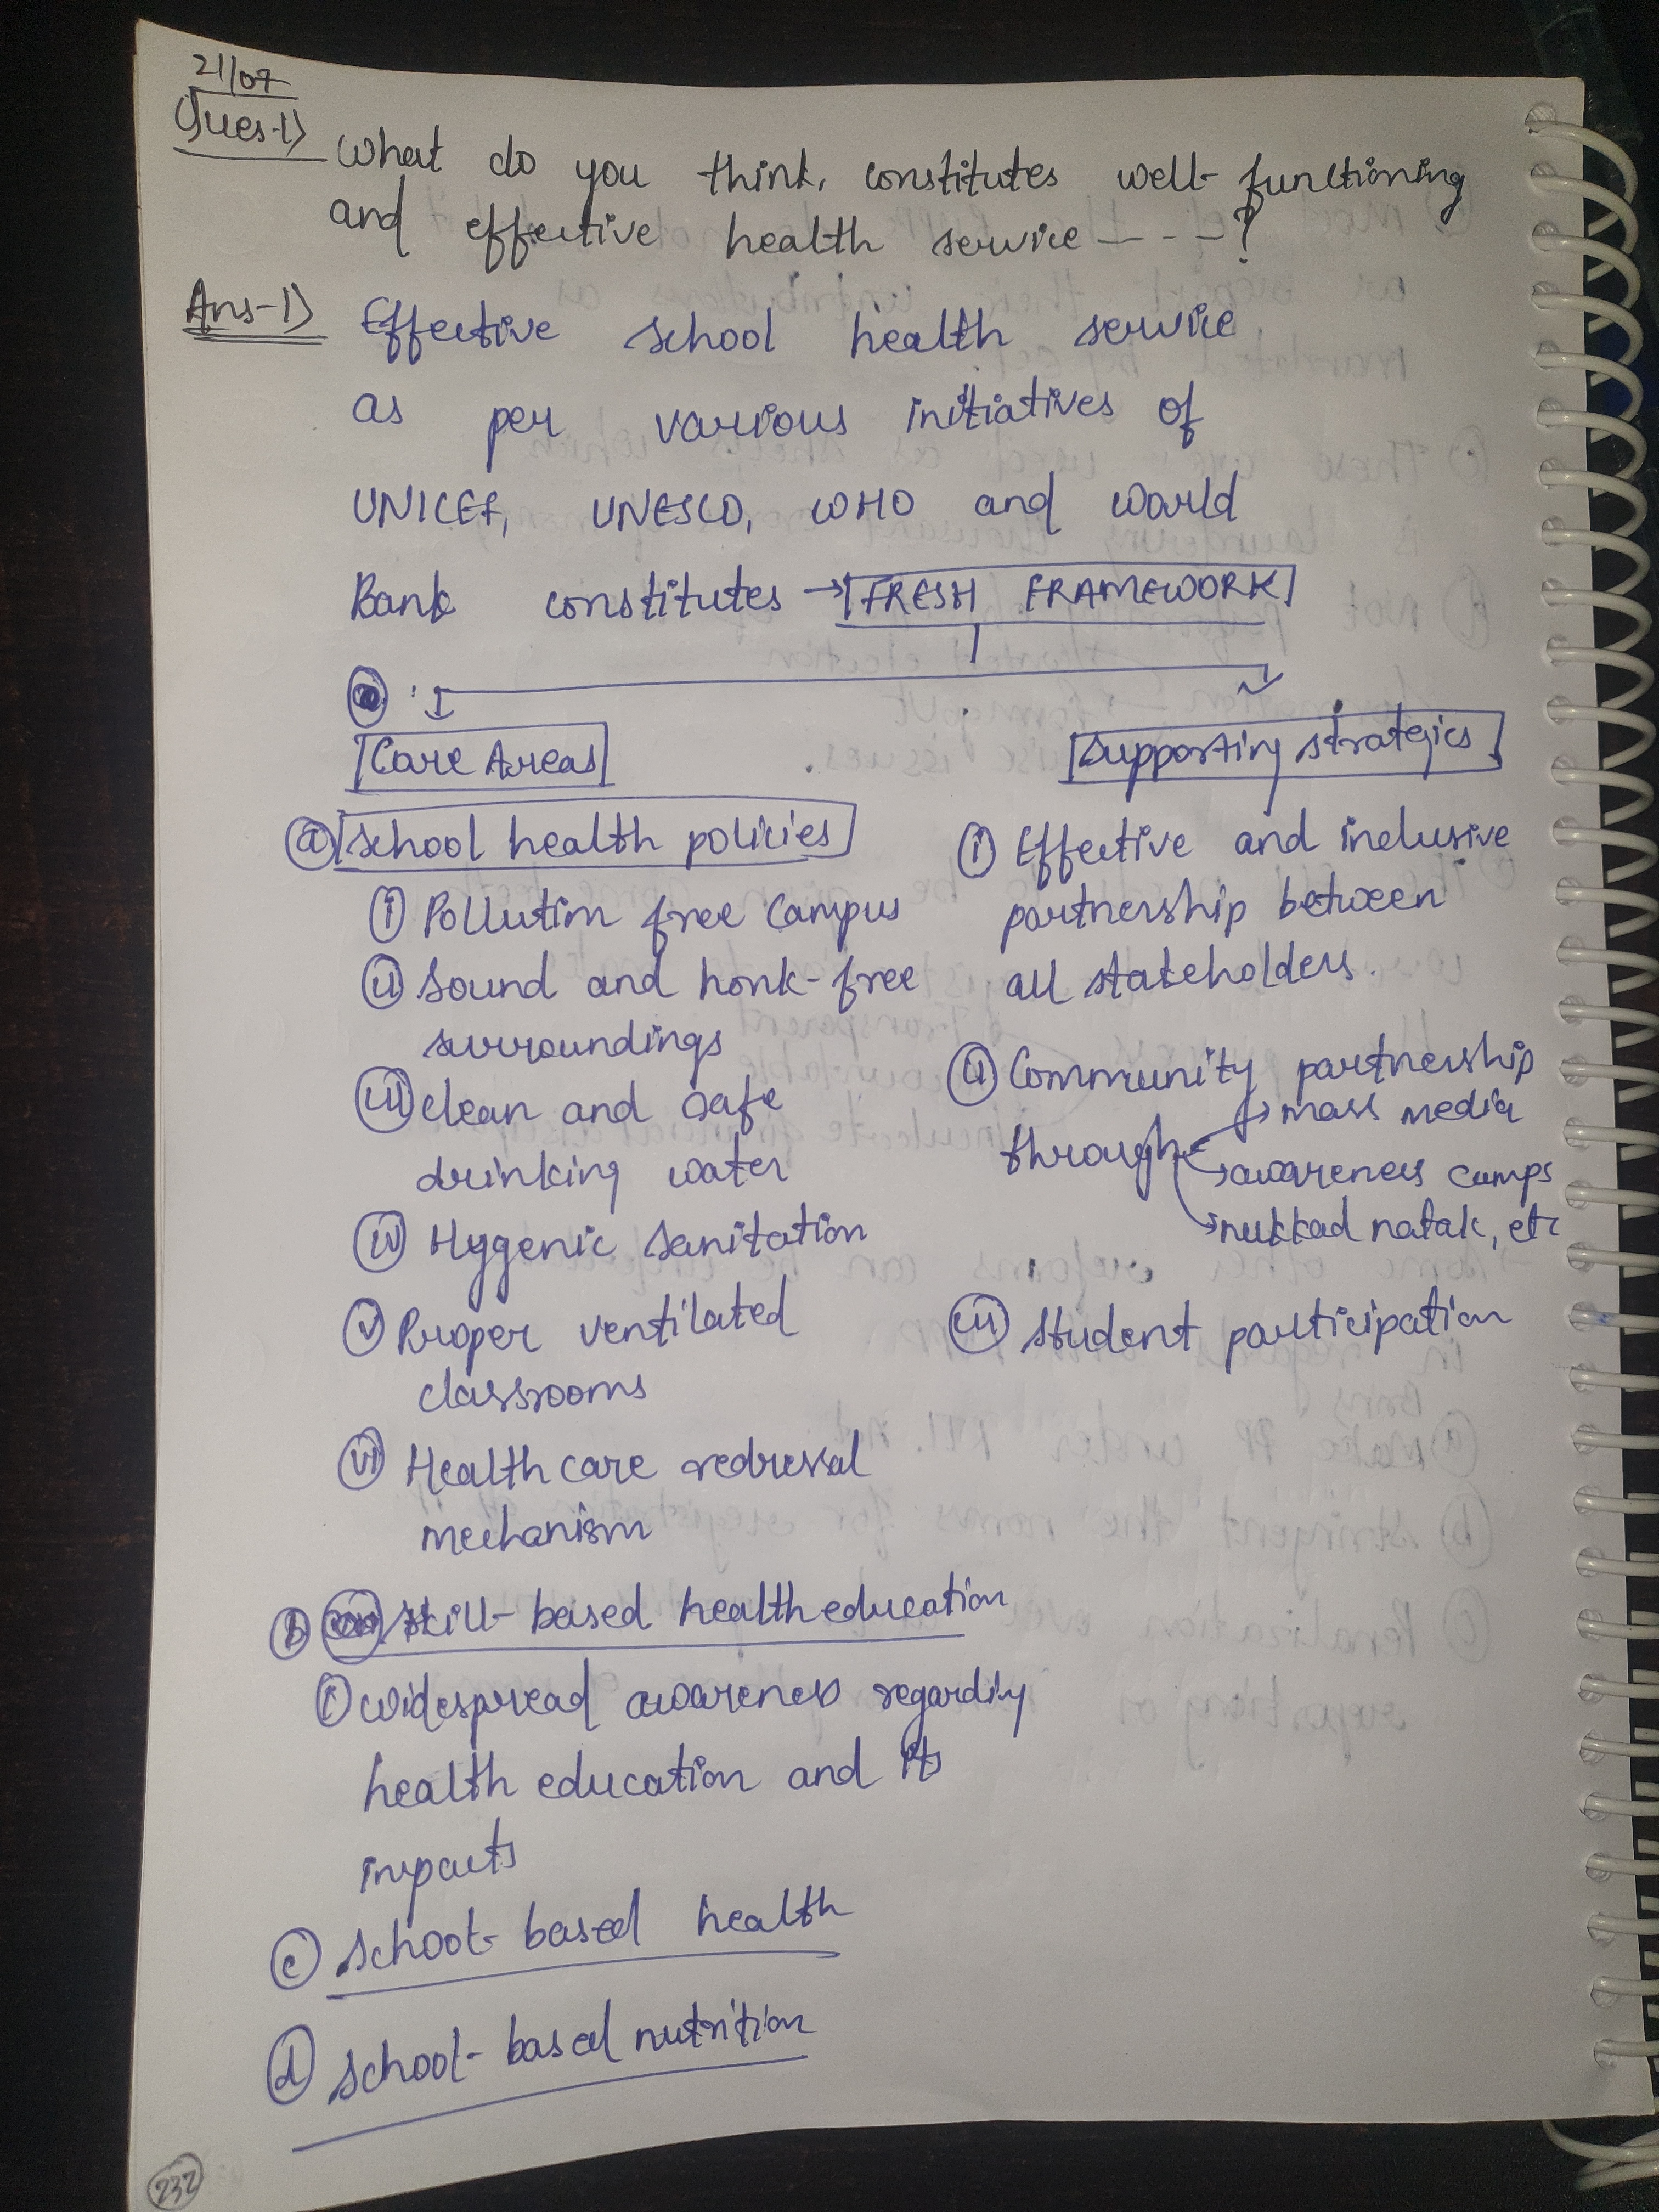 21/07
Ques-1) What do you think, constitutes well-functioning
and effective health service - - - ?
Ans-1) Effective school health service
as per various initiatives of
UNICEF, UNESCO, WHO and World
Bank constitutes → FRESH FRAMEWORK
Core Areas
Supporting strategies
(a) School health policies
(i) Pollution free campus
(ii) Sound and honk-free
surroundings
(iii) clean and safe
drinking water
(iv) Hygenic sanitation
(v) Proper ventilated
classrooms
(vi) Healthcare redressal
mechanism
(b) skill-based health education
(i) widespread awareness regarding
health education and its
impacts
(c) school-based health
(d) school-based nutrition
(i) Effective and inclusive
partnership between
all stakeholders.
(ii) Community partnership
through → mass media
→ awareness camps
→ nukkad natak, etc
(iii) student participation
232